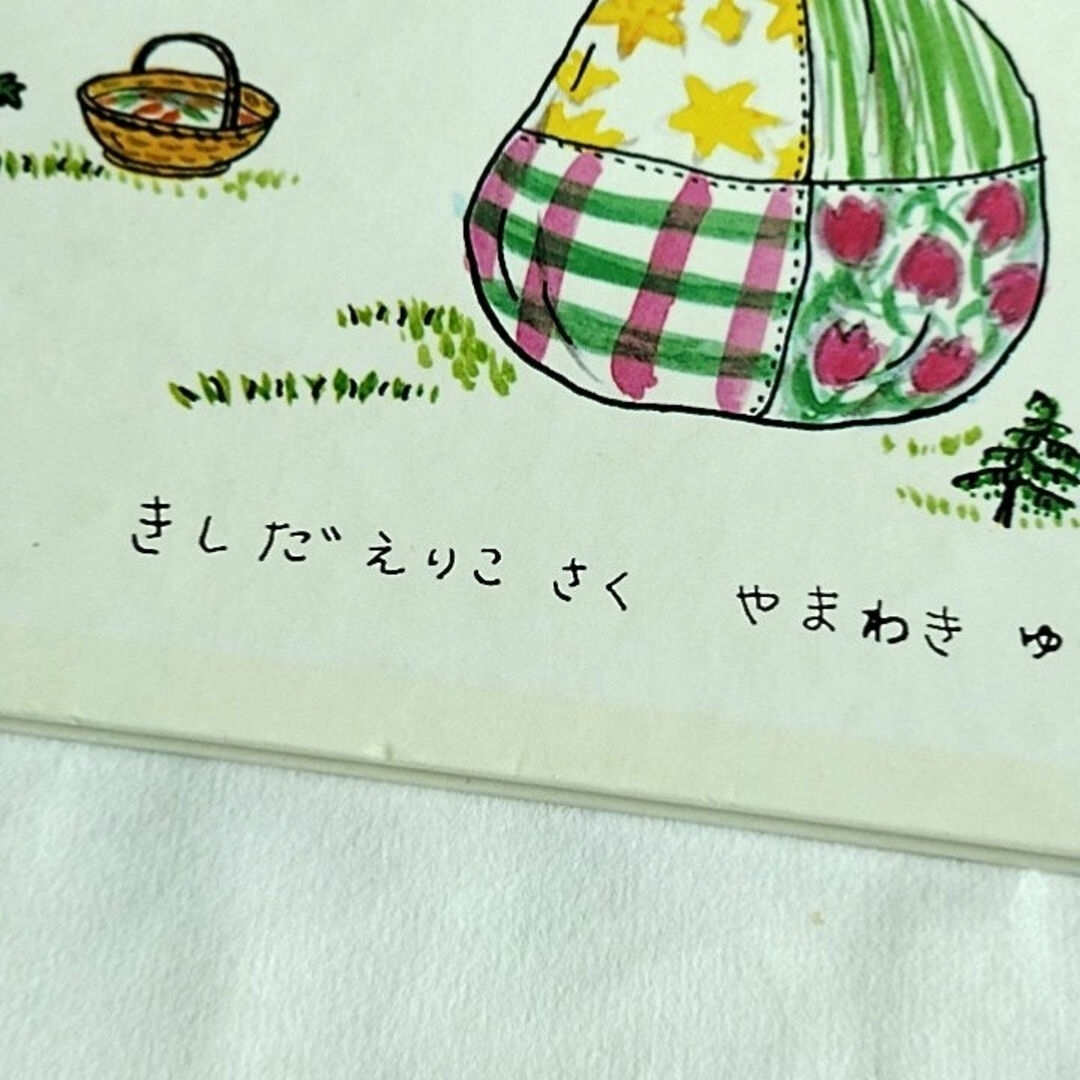 きしだえりこ さく やまわき ゆ